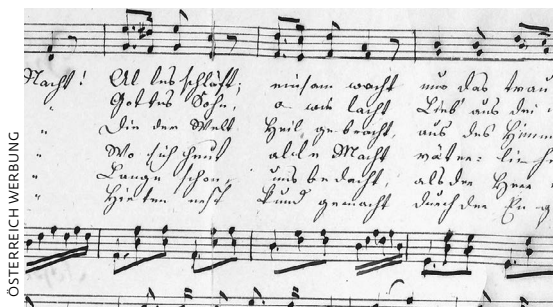 Nacht! Alles schläft; einsam wacht nur das trau
" Gottes Sohn, o wie lacht Lieb' aus dei
" Die der Welt Heil gebracht, aus des Himm
" Wo sich heut alle Macht väter= lich
" Lange schon, uns bedacht, als der Herr
" Hirten erst kund gemacht durch der Eng
ÖSTERREICH WERBUNG